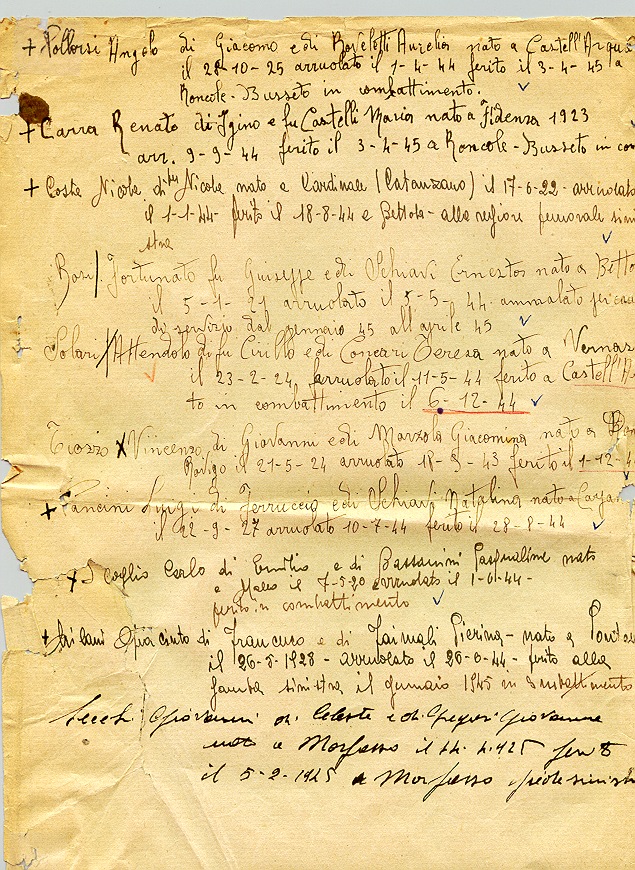 + Pollorsi Angelo di Giacomo e di Boselotti Aurelia nato a Castell'Arqua
il 28-10-25 arruolato il 1-4-44 ferito il 3-4-45 a
Roncole-Busseto in combattimento.
+ Carra Renato di Igino e fu Castelli Maria nato a Fidenza 1923
arr. 9-9-44 ferito il 3-4-45 a Roncole-Busseto in com
+ Costa Nicola di fu Nicola nato a Cardinale (Catanzaro) il 17-6-22 - arruolato
il 1-1-44 - ferito il 18-8-44 a Bettola - alla regione femorale sini
stra
Bosi/Fortunato fu Giuseppe e di Schiavi Ernesta nato a Betto
il 5-1-21 arruolato il 5-5-44 ammalato per cau
di servizio dal gennaio 45 all'aprile 45
Solari/Attendolo di fu Cirillo e di Concari Teresa nato a Vernas
il 23-2-24 arruolato il 11-5-44 ferito a Castell'Ar
to in combattimento il 6-12-44
Tiozzo x Vincenzo di Giovanni e di Marzola Giacomina nato a
Rovigo il 21-5-24 arruolato 18-9-43 ferito il 1-12-4
+ Luigi di Ferruccio e di Schiavi Natalina nato a
il 22-9-27 arruolato 10-7-44 ferito il 28-8-44
x Scoglio Carlo di Emilio e di Bassanini Pasqualina nato
a il 7-5-20 arruolato il
ferito in combattimento
+ di Francesco e di Pierina - nato a
il 26-5-1928 - arruolato il - ferito alla
gamba sinistra il gennaio 1945 in combattimento
Secchi Giovanni di Celeste e di Giovanna
nato a Morfasso il ferito
il 5-2-1945 a Morfasso piede sinistr